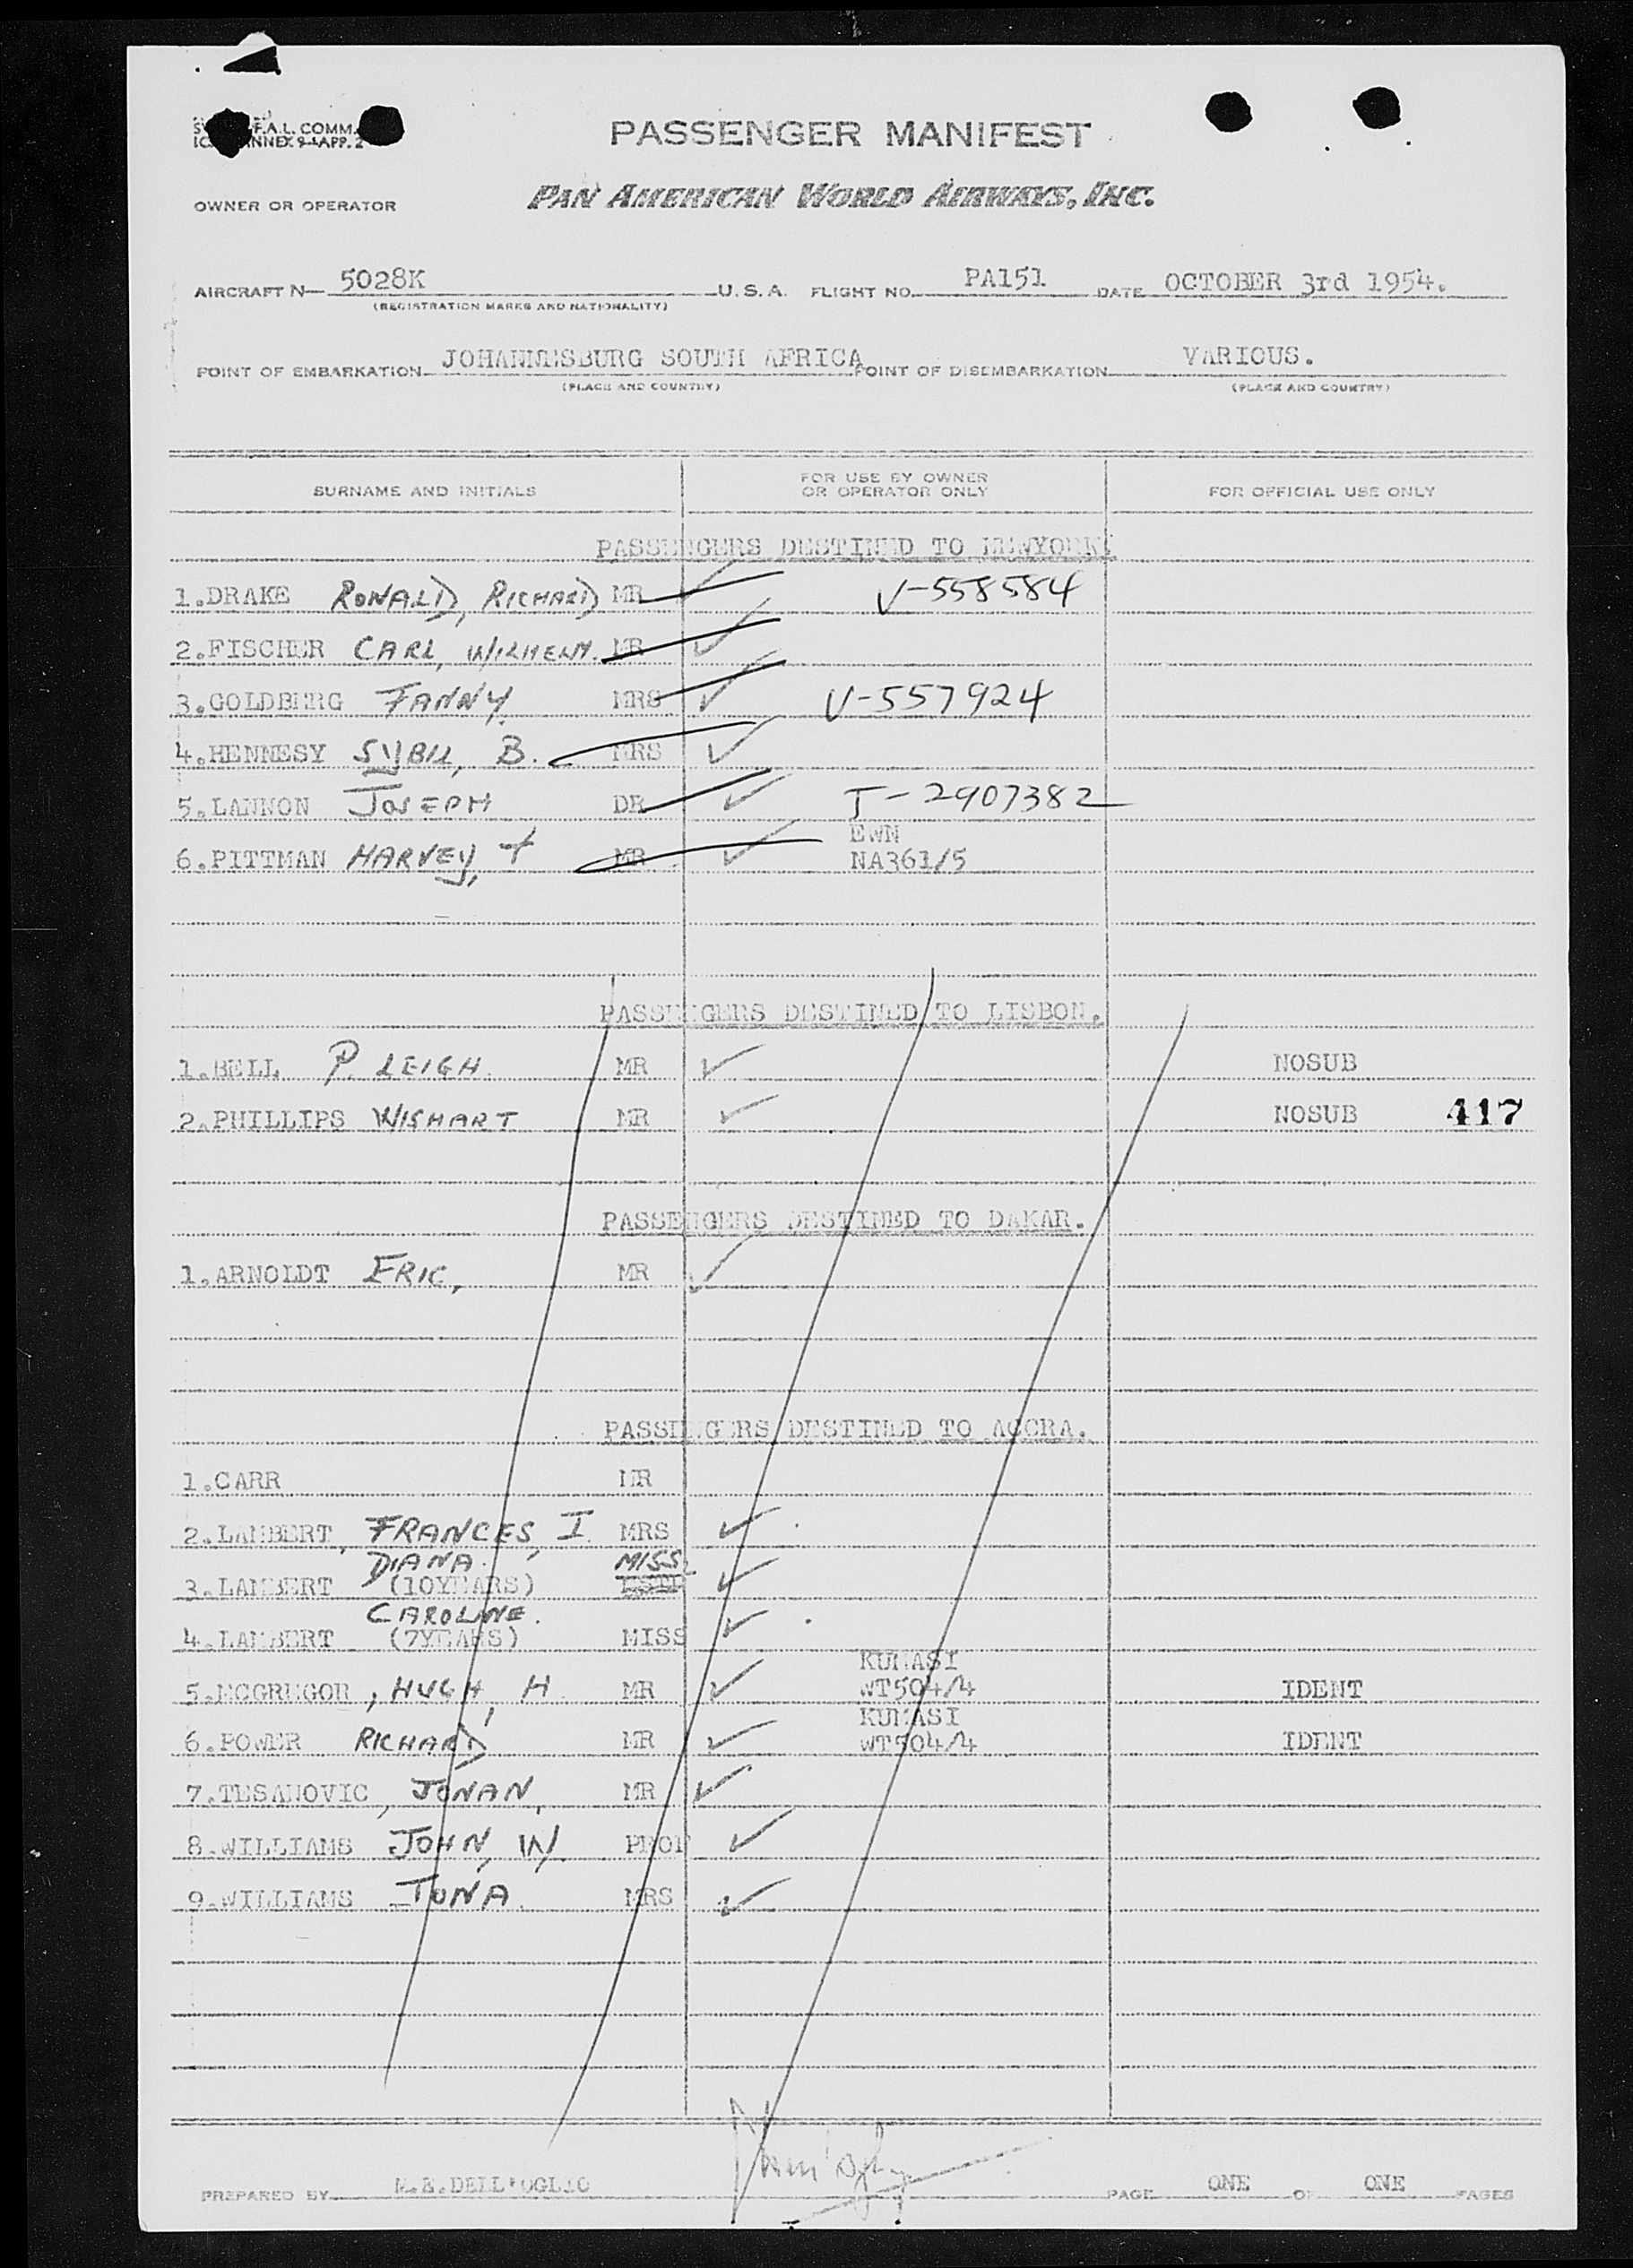 F.A.L. COMM.
ANNEX 9-APP. 2
PASSENGER MANIFEST
OWNER OR OPERATOR PAN AMERICAN WORLD AIRWAYS, INC.
AIRCRAFT N— 5028K U.S.A. FLIGHT NO. PA151 DATE OCTOBER 3rd 1954.
(REGISTRATION MARKS AND NATIONALITY)
POINT OF EMBARKATION JOHANNESBURG SOUTH AFRICA POINT OF DISEMBARKATION VARIOUS.
(PLACE AND COUNTRY) (PLACE AND COUNTRY)
SURNAME AND INITIALS FOR USE BY OWNER OR OPERATOR ONLY FOR OFFICIAL USE ONLY
PASSENGERS DESTINED TO NEWYORK.
1.DRAKE RONALD, RICHARD MR ✓ V-558584
2.FISCHER CARL, WILHELM. MR ✓
3.GOLDBERG FANNY MRS ✓ V-557924
4.HENNESY SYBIL, B. MRS ✓
5.LANNON JOSEPH DR ✓ T-2907382
EWN
6.PITTMAN HARVEY, MR ✓ NA361/5
PASSENGERS DESTINED TO LISBON.
1.BELL P. LEIGH MR ✓ NOSUB
2.PHILLIPS WISHART MR ✓ NOSUB 417
PASSENGERS DESTINED TO DAKAR.
1.ARNOLDT ERIC, MR ✓
PASSENGERS DESTINED TO ACCRA.
1.CARR MR
2.LAMBERT, FRANCES, I. MRS ✓
DIANA. MISS
3.LAMBERT (10YEARS) ✓
CAROLINE.
4.LAMBERT (7YEARS) MISS ✓
KUMASI
5.MCGREGOR, HUGH, H MR ✓ WT504/4 IDENT
KUMASI
6.POWER RICHARD MR ✓ WT504/4 IDENT
7.TESANOVIC, JONAN, MR ✓
8.WILLIAMS JOHN, W. PROF ✓
9.WILLIAMS JUNA. MRS ✓
PREPARED BY M.E.DELL'OGLIO PAGE ONE OF ONE PAGES